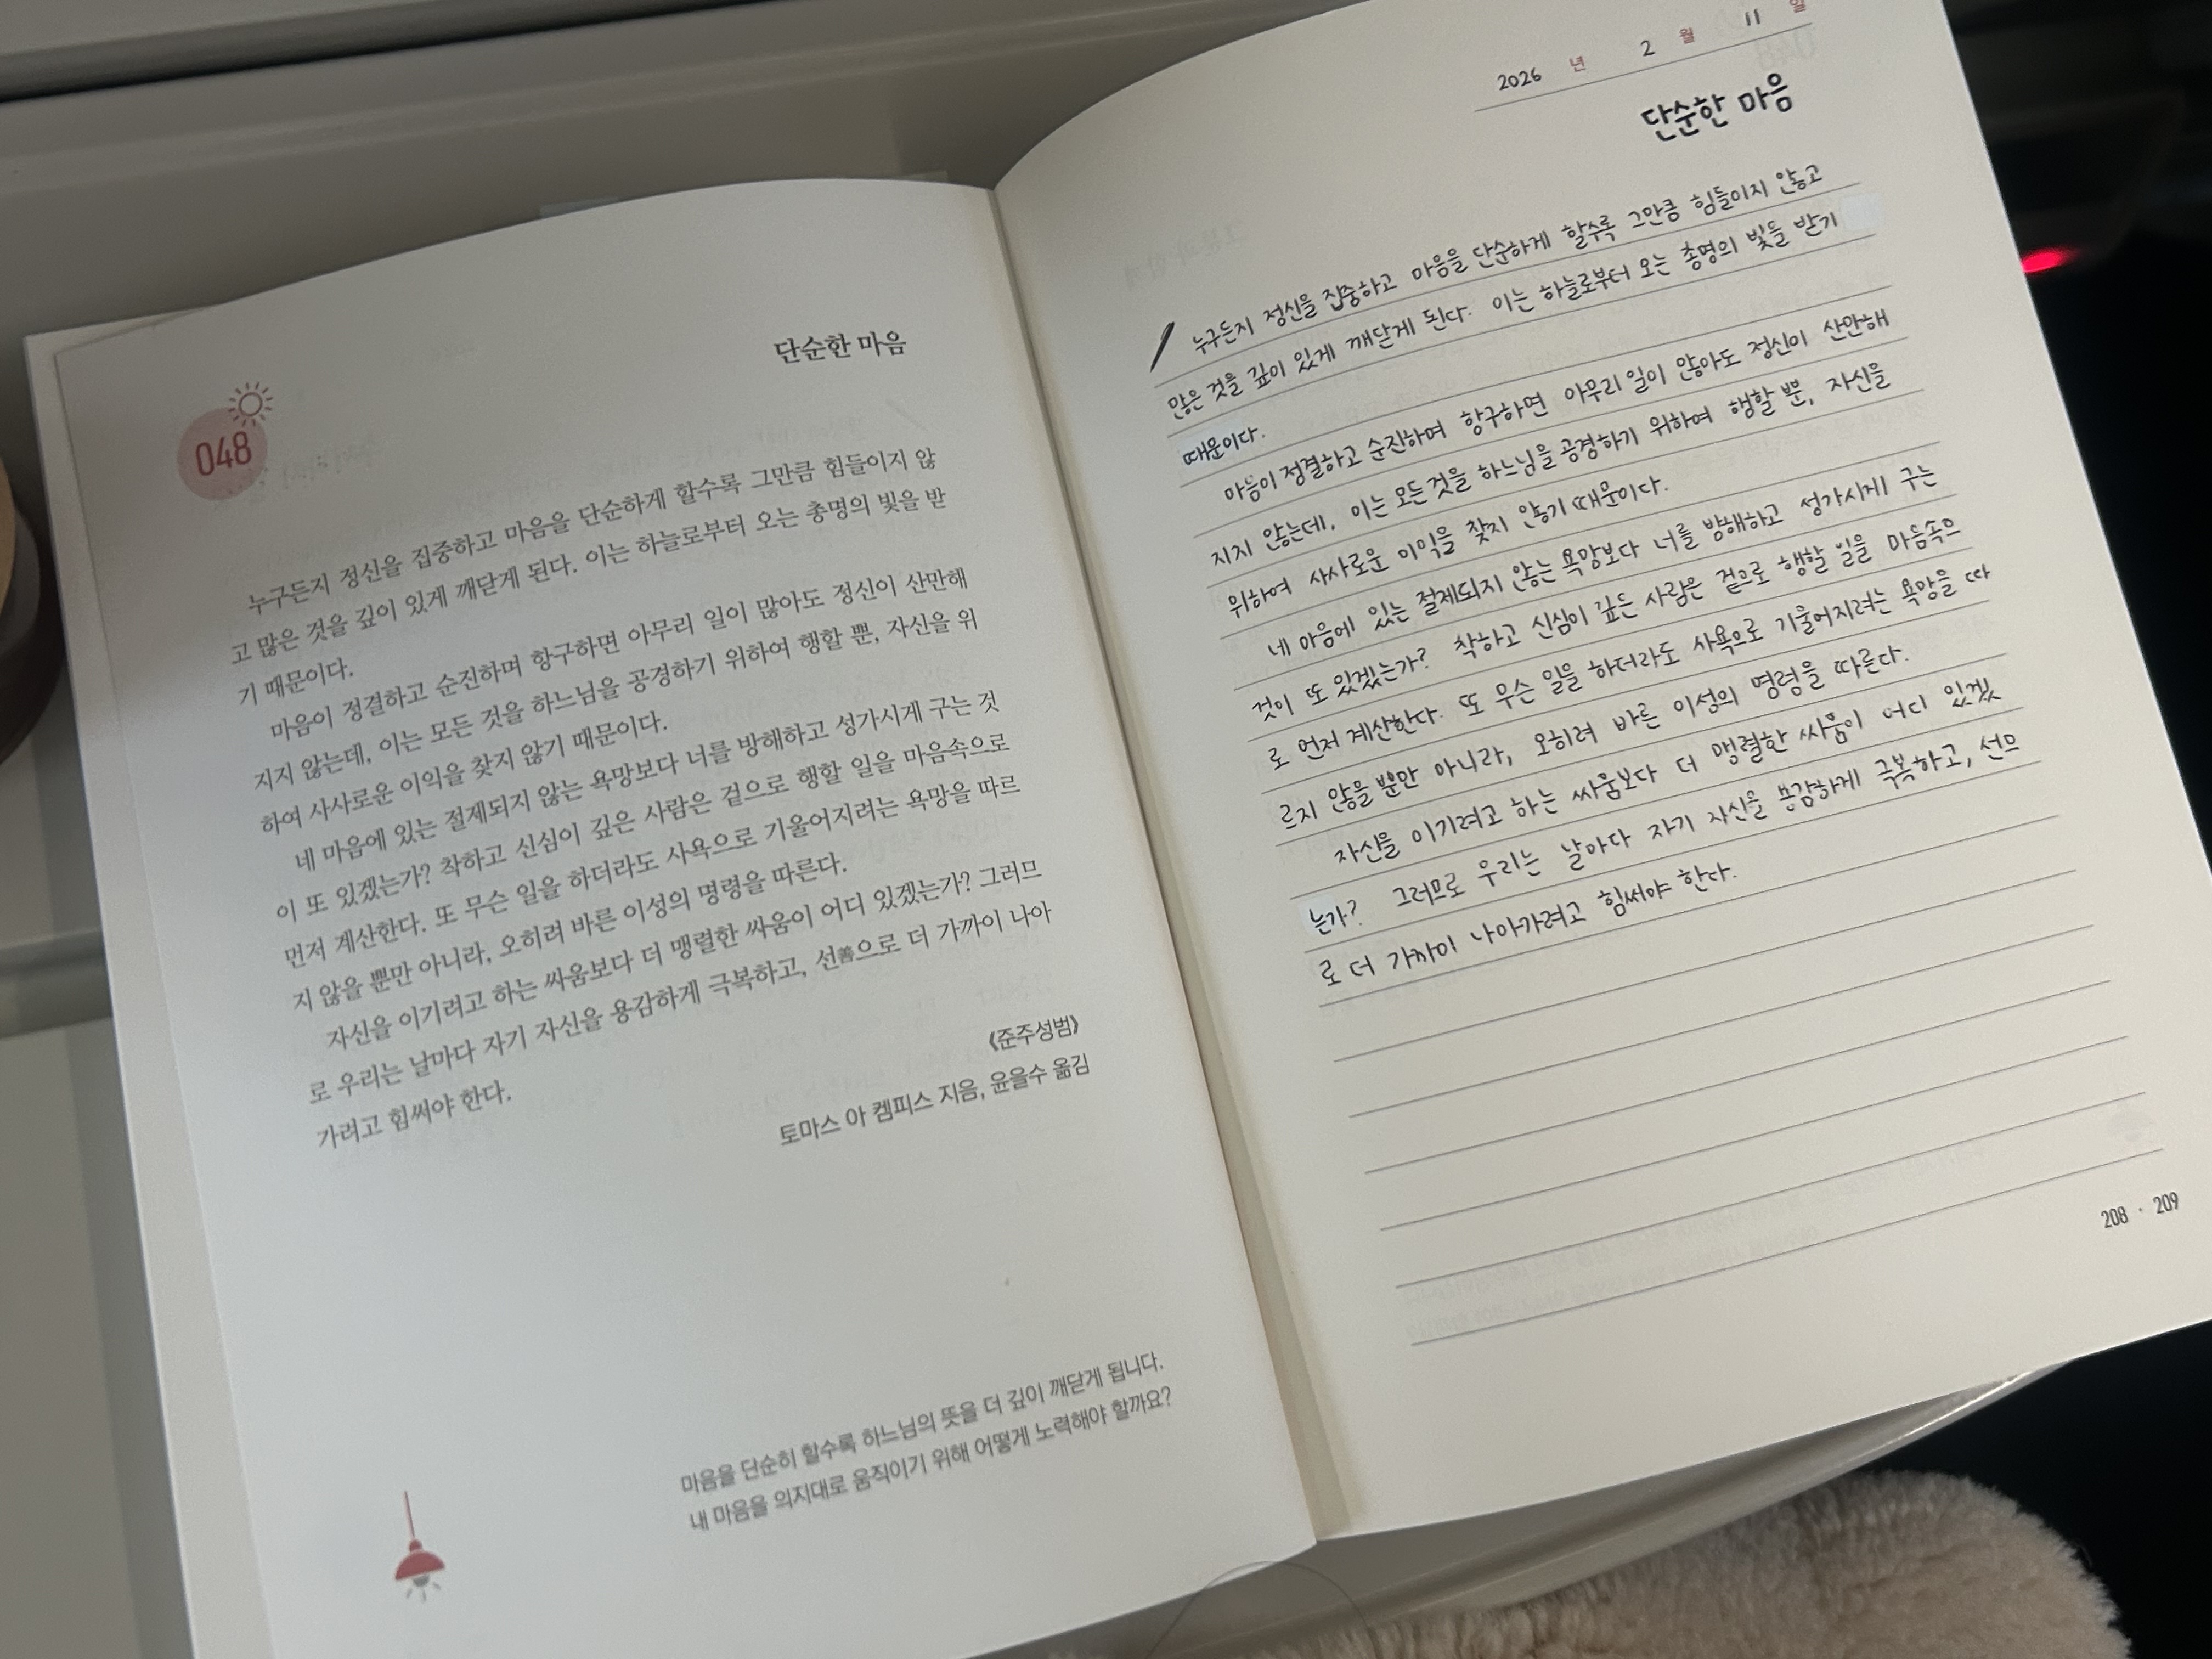 단순한 마음
048
누구든지 정신을 집중하고 마음을 단순하게 할수록 그만큼 힘들이지 않
고 많은 것을 깊이 있게 깨닫게 된다. 이는 하늘로부터 오는 총명의 빛을 받
기 때문이다.
마음이 정결하고 순진하며 항구하면 아무리 일이 많아도 정신이 산만해
지지 않는데, 이는 모든 것을 하느님을 공경하기 위하여 행할 뿐, 자신을 위
하여 사사로운 이익을 찾지 않기 때문이다.
네 마음에 있는 절제되지 않는 욕망보다 너를 방해하고 성가시게 구는 것
이 또 있겠는가? 착하고 신심이 깊은 사람은 겉으로 행할 일을 마음속으로
먼저 계산한다. 또 무슨 일을 하더라도 사욕으로 기울어지려는 욕망을 따르
지 않을 뿐만 아니라, 오히려 바른 이성의 명령을 따른다.
자신을 이기려고 하는 싸움보다 더 맹렬한 싸움이 어디 있겠는가? 그러므
로 우리는 날마다 자기 자신을 용감하게 극복하고, 선善으로 더 가까이 나아
가려고 힘써야 한다.
《준주성범》
토마스 아 켐피스 지음, 윤을수 옮김
마음을 단순히 할수록 하느님의 뜻을 더 깊이 깨닫게 됩니다.
내 마음을 의지대로 움직이기 위해 어떻게 노력해야 할까요?
2026 년 2 월 11 일
단순한 마음
누구든지 정신을 집중하고 마음을 단순하게 할수록 그만큼 힘들이지 않고
많은 것을 깊이 있게 깨닫게 된다. 이는 하늘로부터 오는 총명의 빛을 받기
때문이다.
마음이 정결하고 순진하며 항구하면 아무리 일이 많아도 정신이 산만해
지지 않는데, 이는 모든 것을 하느님을 공경하기 위하여 행할 뿐, 자신을
위하여 사사로운 이익을 찾지 않기 때문이다.
네 마음에 있는 절제되지 않는 욕망보다 너를 방해하고 성가시게 구는
것이 또 있겠는가? 착하고 신심이 깊은 사람은 겉으로 행할 일을 마음속으
로 먼저 계산한다. 또 무슨 일을 하더라도 사욕으로 기울어지려는 욕망을 따
르지 않을 뿐만 아니라, 오히려 바른 이성의 명령을 따른다.
자신을 이기려고 하는 싸움보다 더 맹렬한 싸움이 어디 있겠
는가? 그러므로 우리는 날마다 자기 자신을 용감하게 극복하고, 선으
로 더 가까이 나아가려고 힘써야 한다.
208 · 209